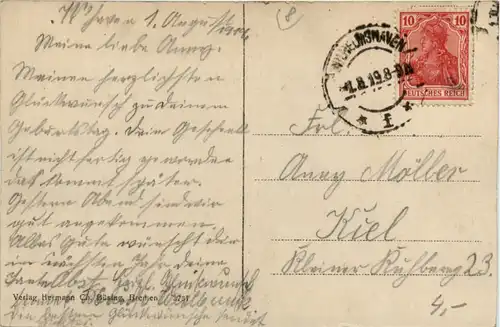 W'haven 1. August
Meine liebe Anny.
Meinen herzlichsten
Glückwunsch zu deinem
Geburtstag. Dein Geschenk
ist nicht fertig geworden
das kommt später.
Gestern Abend sind wir
gut angekommen.
Alles Gute wünscht dir
im nächsten Jahr deine
Glückwunsch
Verlag Hermann Bremen
Den besten Glückwunsch sendet
8
WILHELMSHAVEN
1.8.19.8-9
* f *
10 10
DEUTSCHES REICH
Frl.
Anny Möller
Kiel
Kleiner Kuhberg 23
4,-